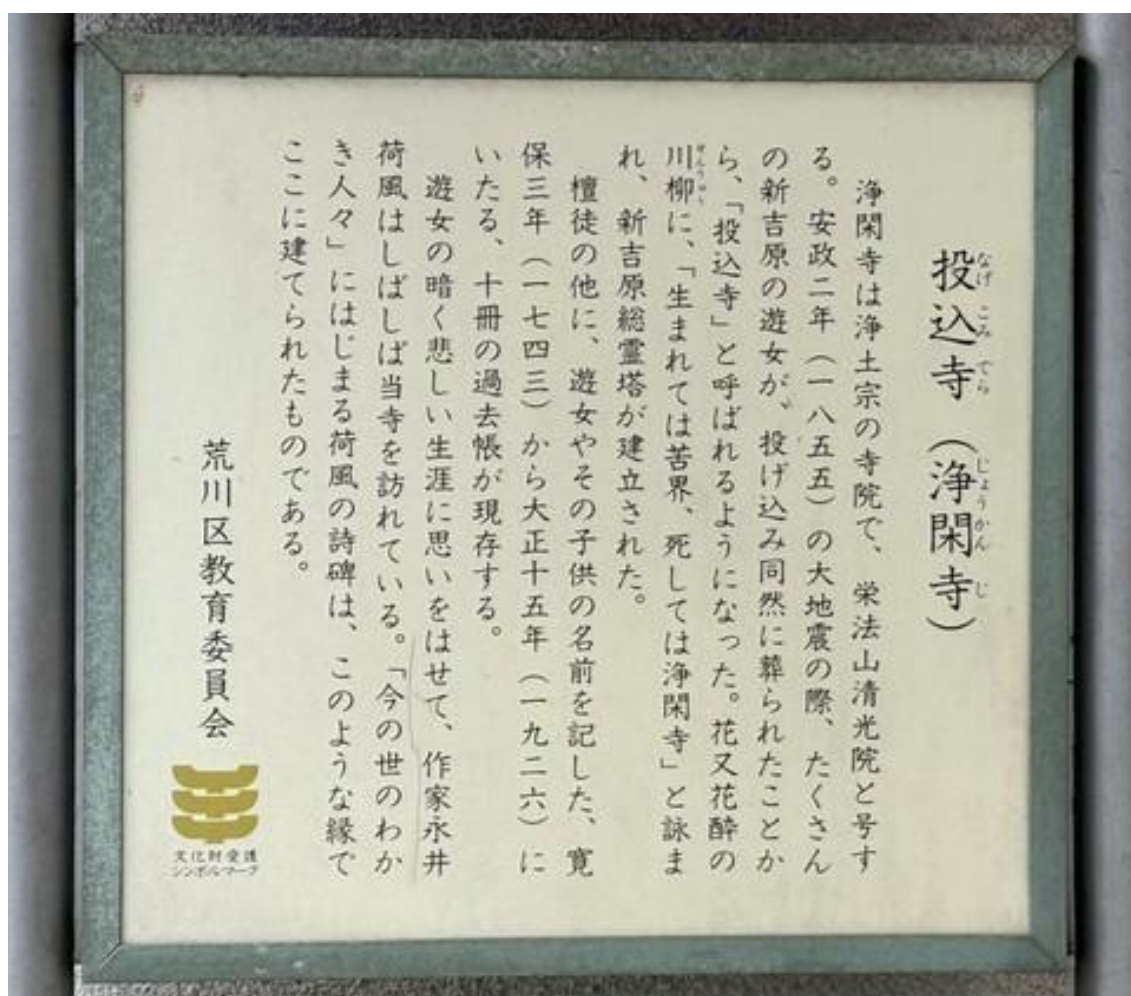 投込寺（浄閑寺）
なげ こみ でら じょうかん じ
浄閑寺は浄土宗の寺院で、栄法山清光院と号す
る。安政二年（一八五五）の大地震の際、たくさん
の新吉原の遊女が、投げ込み同然に葬られたことか
ら、「投込寺」と呼ばれるようになった。花又花酔の
川柳に、「生まれては苦界、死しては浄閑寺」と詠ま
せんりゅう
れ、新吉原総霊塔が建立された。
檀徒の他に、遊女やその子供の名前を記した、寛
保三年（一七四三）から大正十五年（一九二六）に
いたる、十冊の過去帳が現存する。
遊女の暗く悲しい生涯に思いをはせて、作家永井
荷風はしばしば当寺を訪れている。「今の世のわか
き人々」にはじまる荷風の詩碑は、このような縁で
ここに建てられたものである。
荒川区教育委員会
文化財愛護
シンボルマーク